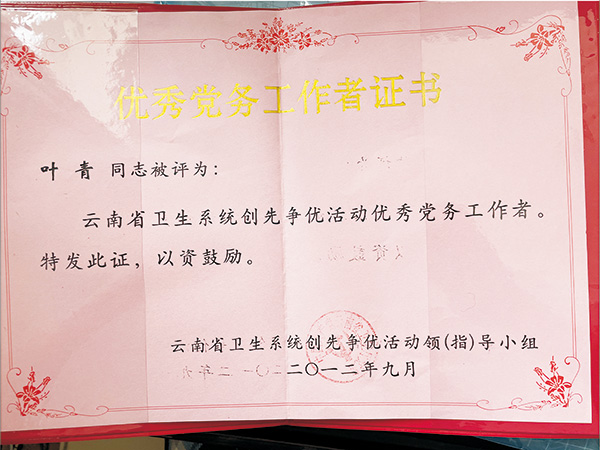 优秀党务工作者证书
叶 青 同志被评为：
云南省卫生系统创先争优活动优秀党务工作者。
特发此证，以资鼓励。
云南省卫生系统创先争优活动领(指)导小组
二〇一二年九月